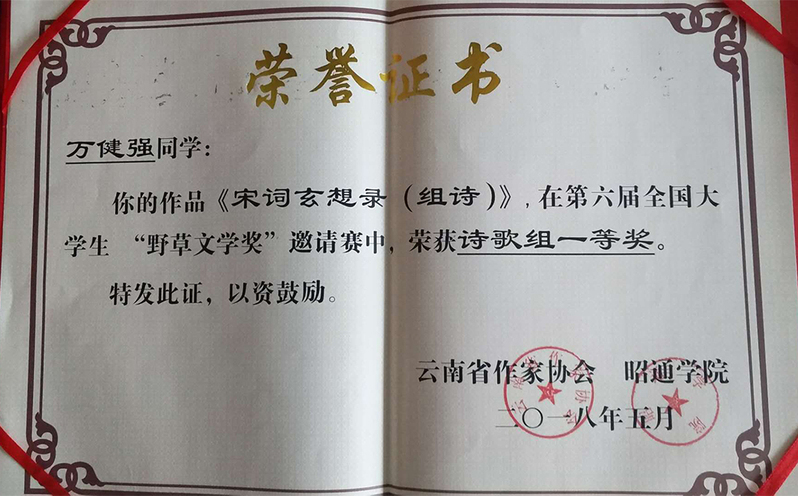 荣誉证书
万健强同学：
你的作品《宋词玄想录（组诗）》，在第六届全国大
学生 “野草文学奖” 邀请赛中，荣获诗歌组一等奖。
特发此证，以资鼓励。
云南省作家协会 昭通学院
二〇一八年五月